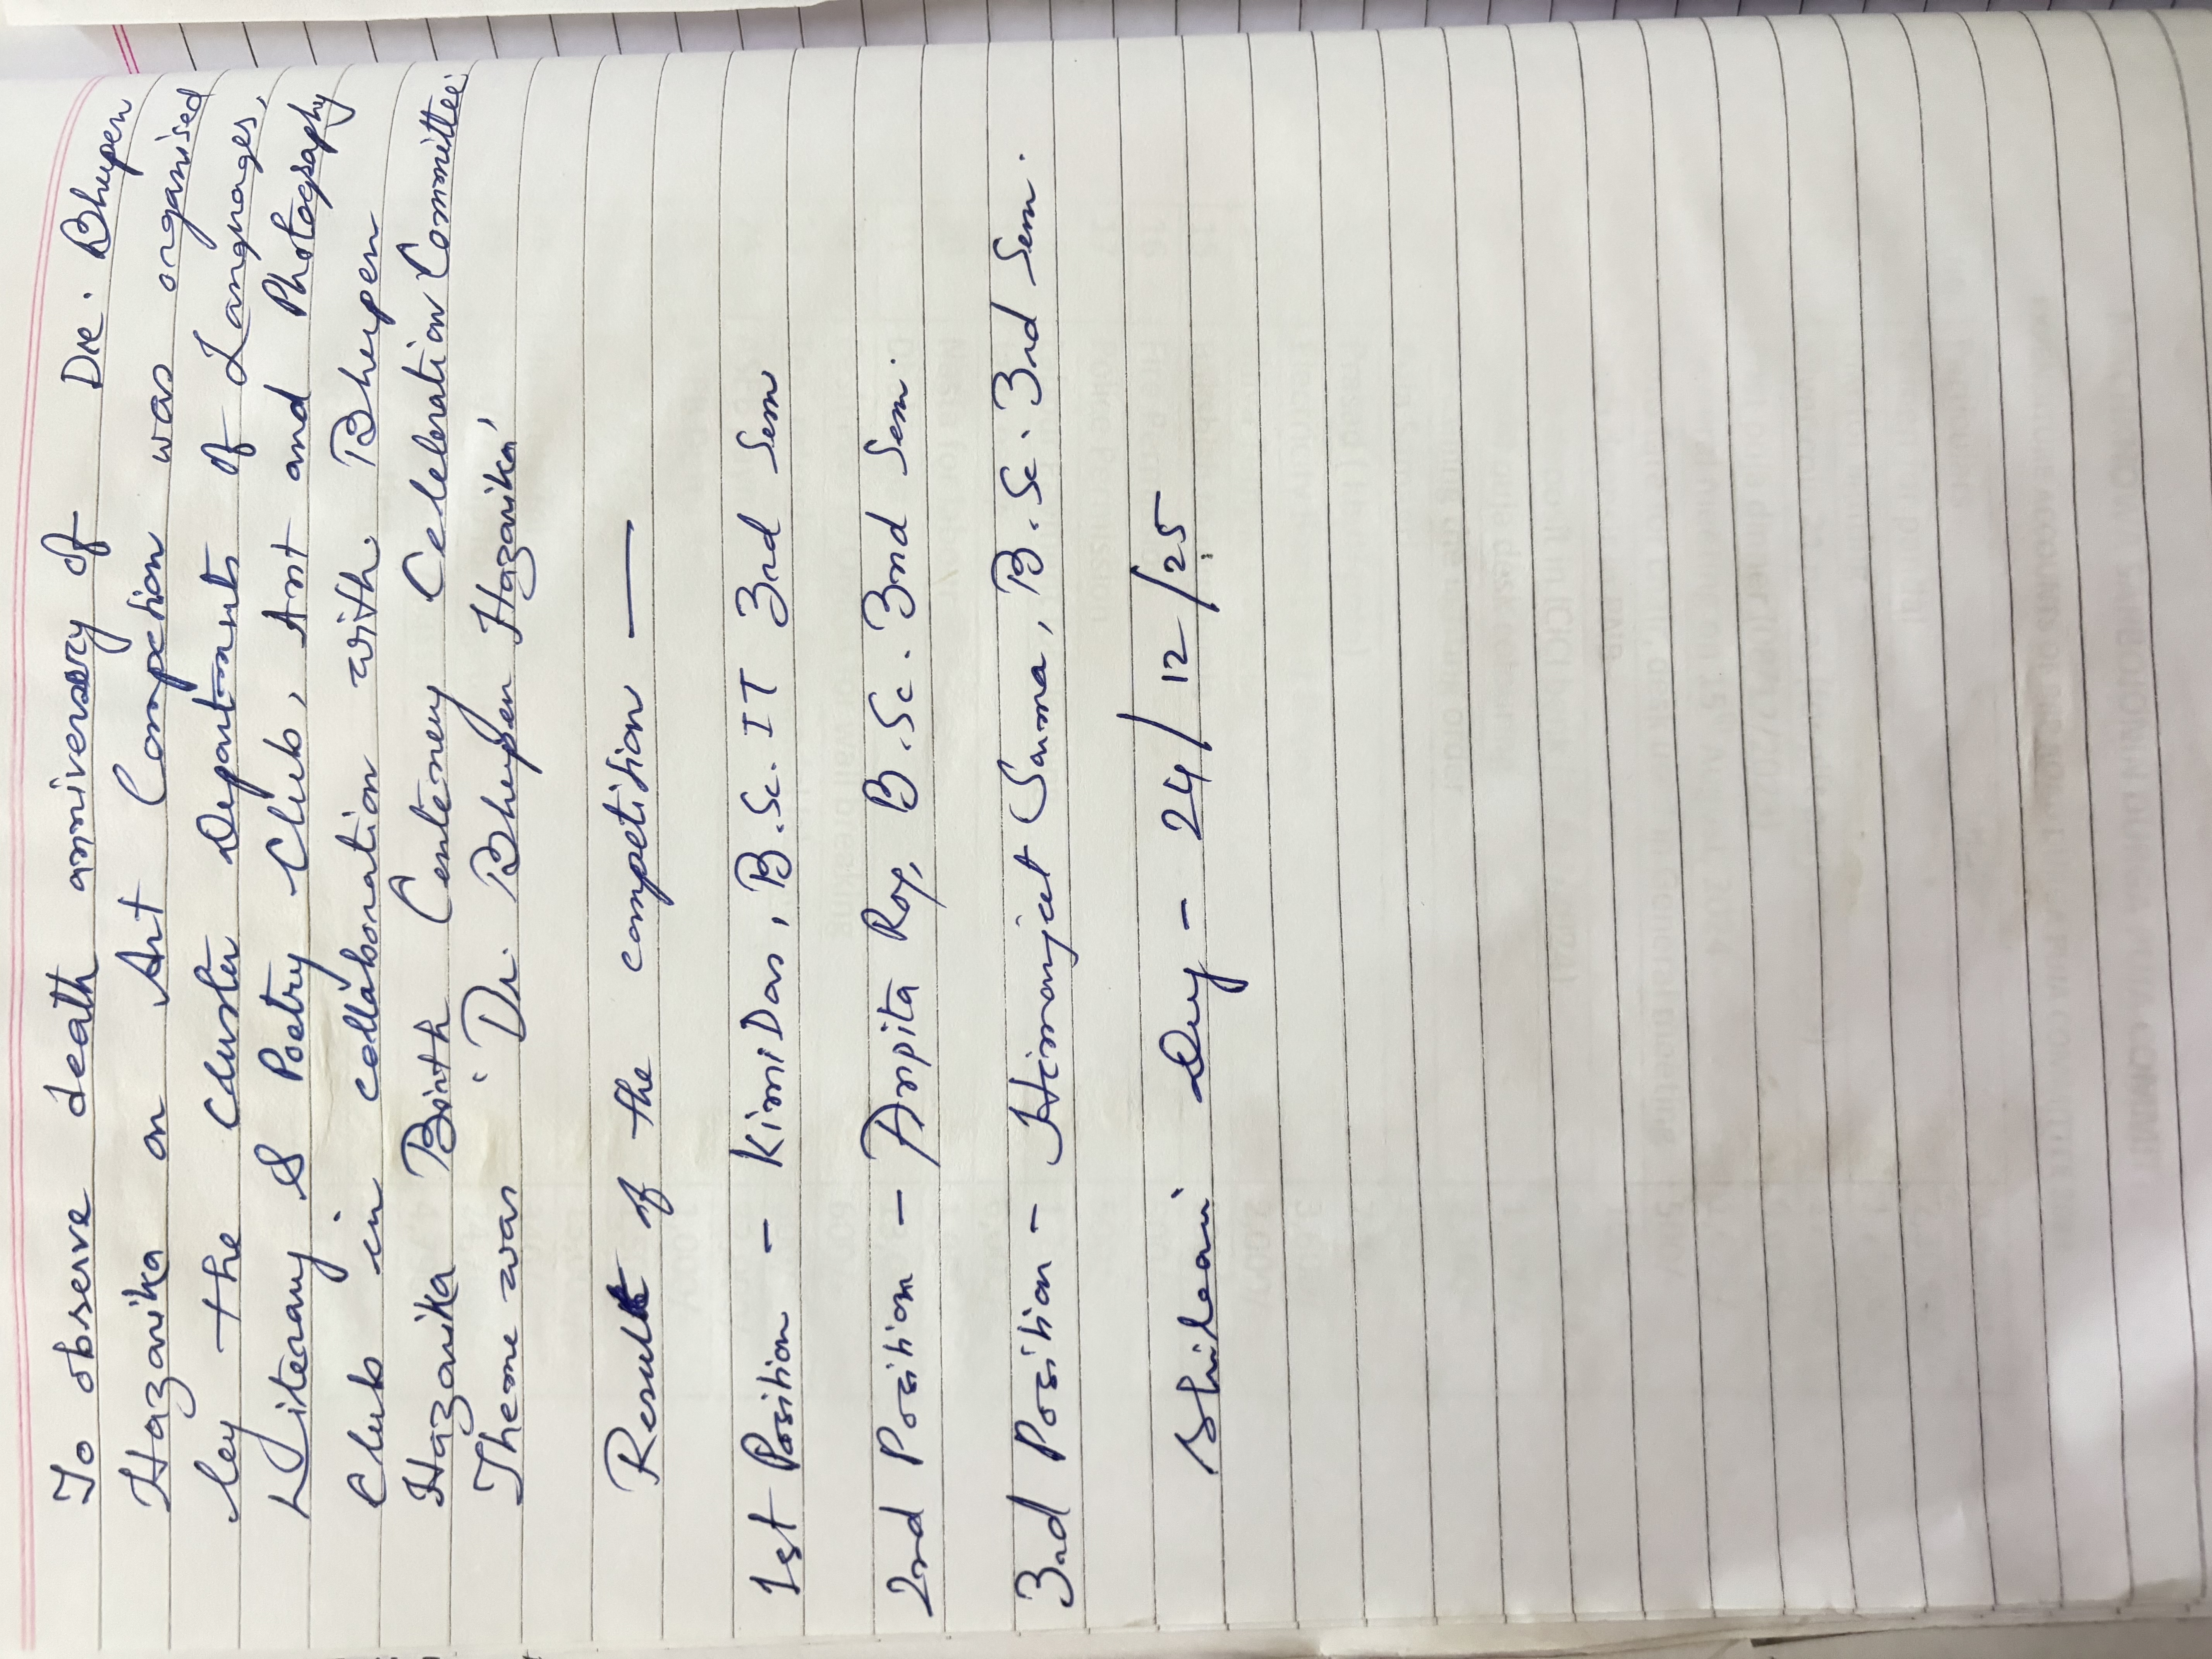 To observe death anniversary of Dr. Bhupen
Hazarika an Art Compection was organised
by the Cluster Departments of Languages,
Literary & Poetry Club, Art and Photography
Club in collaboration with Bhupen
Hazarika Birth Centenery Celebration Committee
Theme was 'Dr. Bhupen Hazarika'
Result of the competition —
1st Position - Kimi Das, B.Sc. IT 3rd Sem
2nd Position - Arpita Roy, B.Sc. 3rd Sem.
3rd Position - Himanjeet Sarma, B.Sc. 3rd Sem.
Dey - 24/12/25